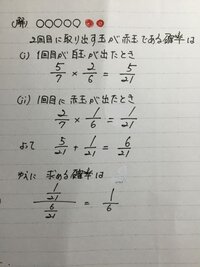 (解) ○○○○○●●
2回目に取り出す玉が赤玉である確率は
(i) 1回目が白玉が出たとき
5/7 × 2/6 = 5/21
(ii) 1回目が赤玉が出たとき
2/7 × 1/6 = 1/21
よって 5/21 + 1/21 = 6/21
ゆえに 求める確率は
1/21 / 6/21 = 1/6